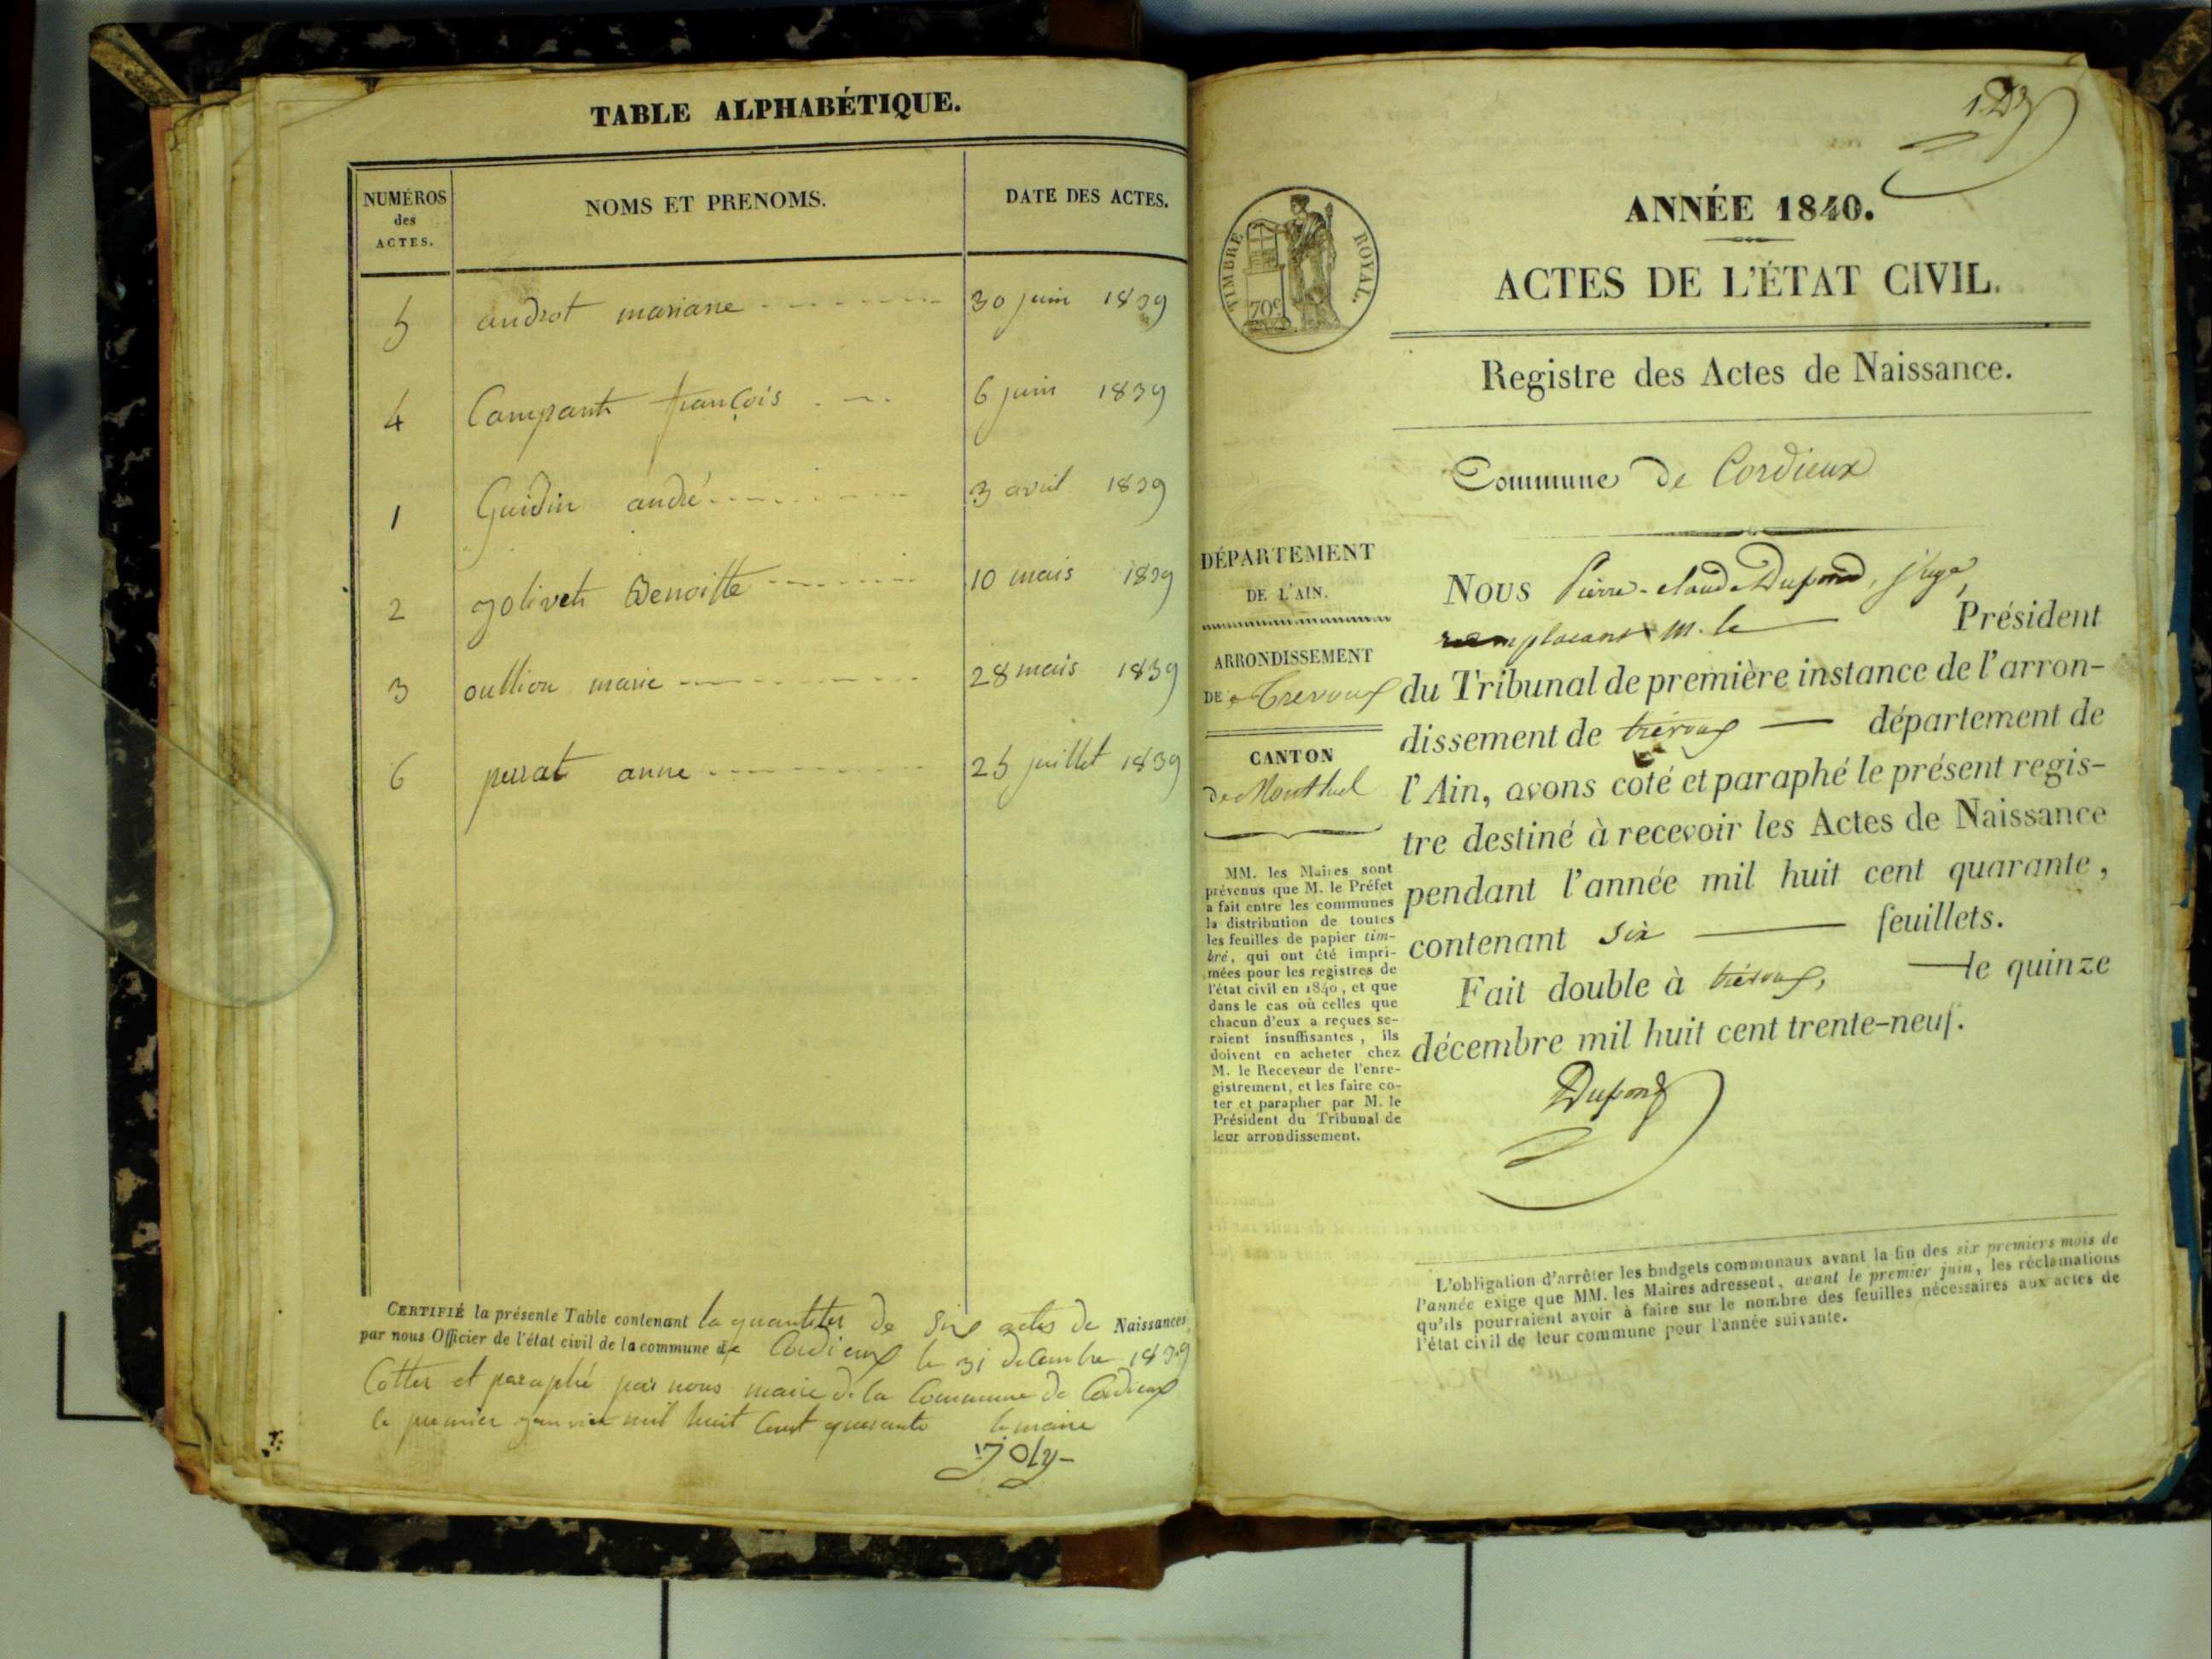 TABLE ALPHABÉTIQUE.
NUMÉROS
des
ACTES.
NOMS ET PRENOMS.
DATE DES ACTES.
5 androt mariane 30 juin 1839
4 Campant françois 6 juin 1839
1 Guidin andré 3 avril 1839
2 jolivet Benoitte 10 mais 1839
3 oullion marie 28 mais 1839
6 perrat anne 25 juillet 1839
CERTIFIÉ la présente Table contenant la quantiter de six actes de Naissances,
par nous Officier de l'état civil de la commune de Cordieux le 31 decembre 1839
Cotter et paraphé par nous maire de la Commune de Cordieux
le premier janvier mil huit Cent quarante le maire
joly
1 D
TIMBRE ROYAL.
70c
ANNÉE 1840.
ACTES DE L'ÉTAT CIVIL.
Registre des Actes de Naissance.
Commune de Cordieux
DÉPARTEMENT
DE L'AIN.
ARRONDISSEMENT
DE Trevoux
CANTON
de Montluel
MM. les Maires sont
prévenus que M. le Préfet
a fait entre les communes
la distribution de toutes
les feuilles de papier tim-
bré, qui ont été impri-
mées pour les registres de
l'état civil en 1840, et que
dans le cas où celles que
chacun d'eux a reçues se-
raient insuffisantes, ils
doivent en acheter chez
M. le Receveur de l'enre-
gistrement, et les faire co-
ter et parapher par M. le
Président du Tribunal de
leur arrondissement.
NOUS Pierre-claude Dupond, juge,
remplacant M. le Président
du Tribunal de première instance de l'arron-
dissement de trévoux — département de
l'Ain, avons coté et paraphé le présent regis-
tre destiné à recevoir les Actes de Naissance
pendant l'année mil huit cent quarante,
contenant six — feuillets.
Fait double à trévoux, — le quinze
décembre mil huit cent trente-neuf.
Dupond
L'obligation d'arrêter les budgets communaux avant la fin des six premiers mois de
l'année exige que MM. les Maires adressent, avant le premier juin, les réclamations
qu'ils pourraient avoir à faire sur le nombre des feuilles nécessaires aux actes de
l'état civil de leur commune pour l'année suivante.